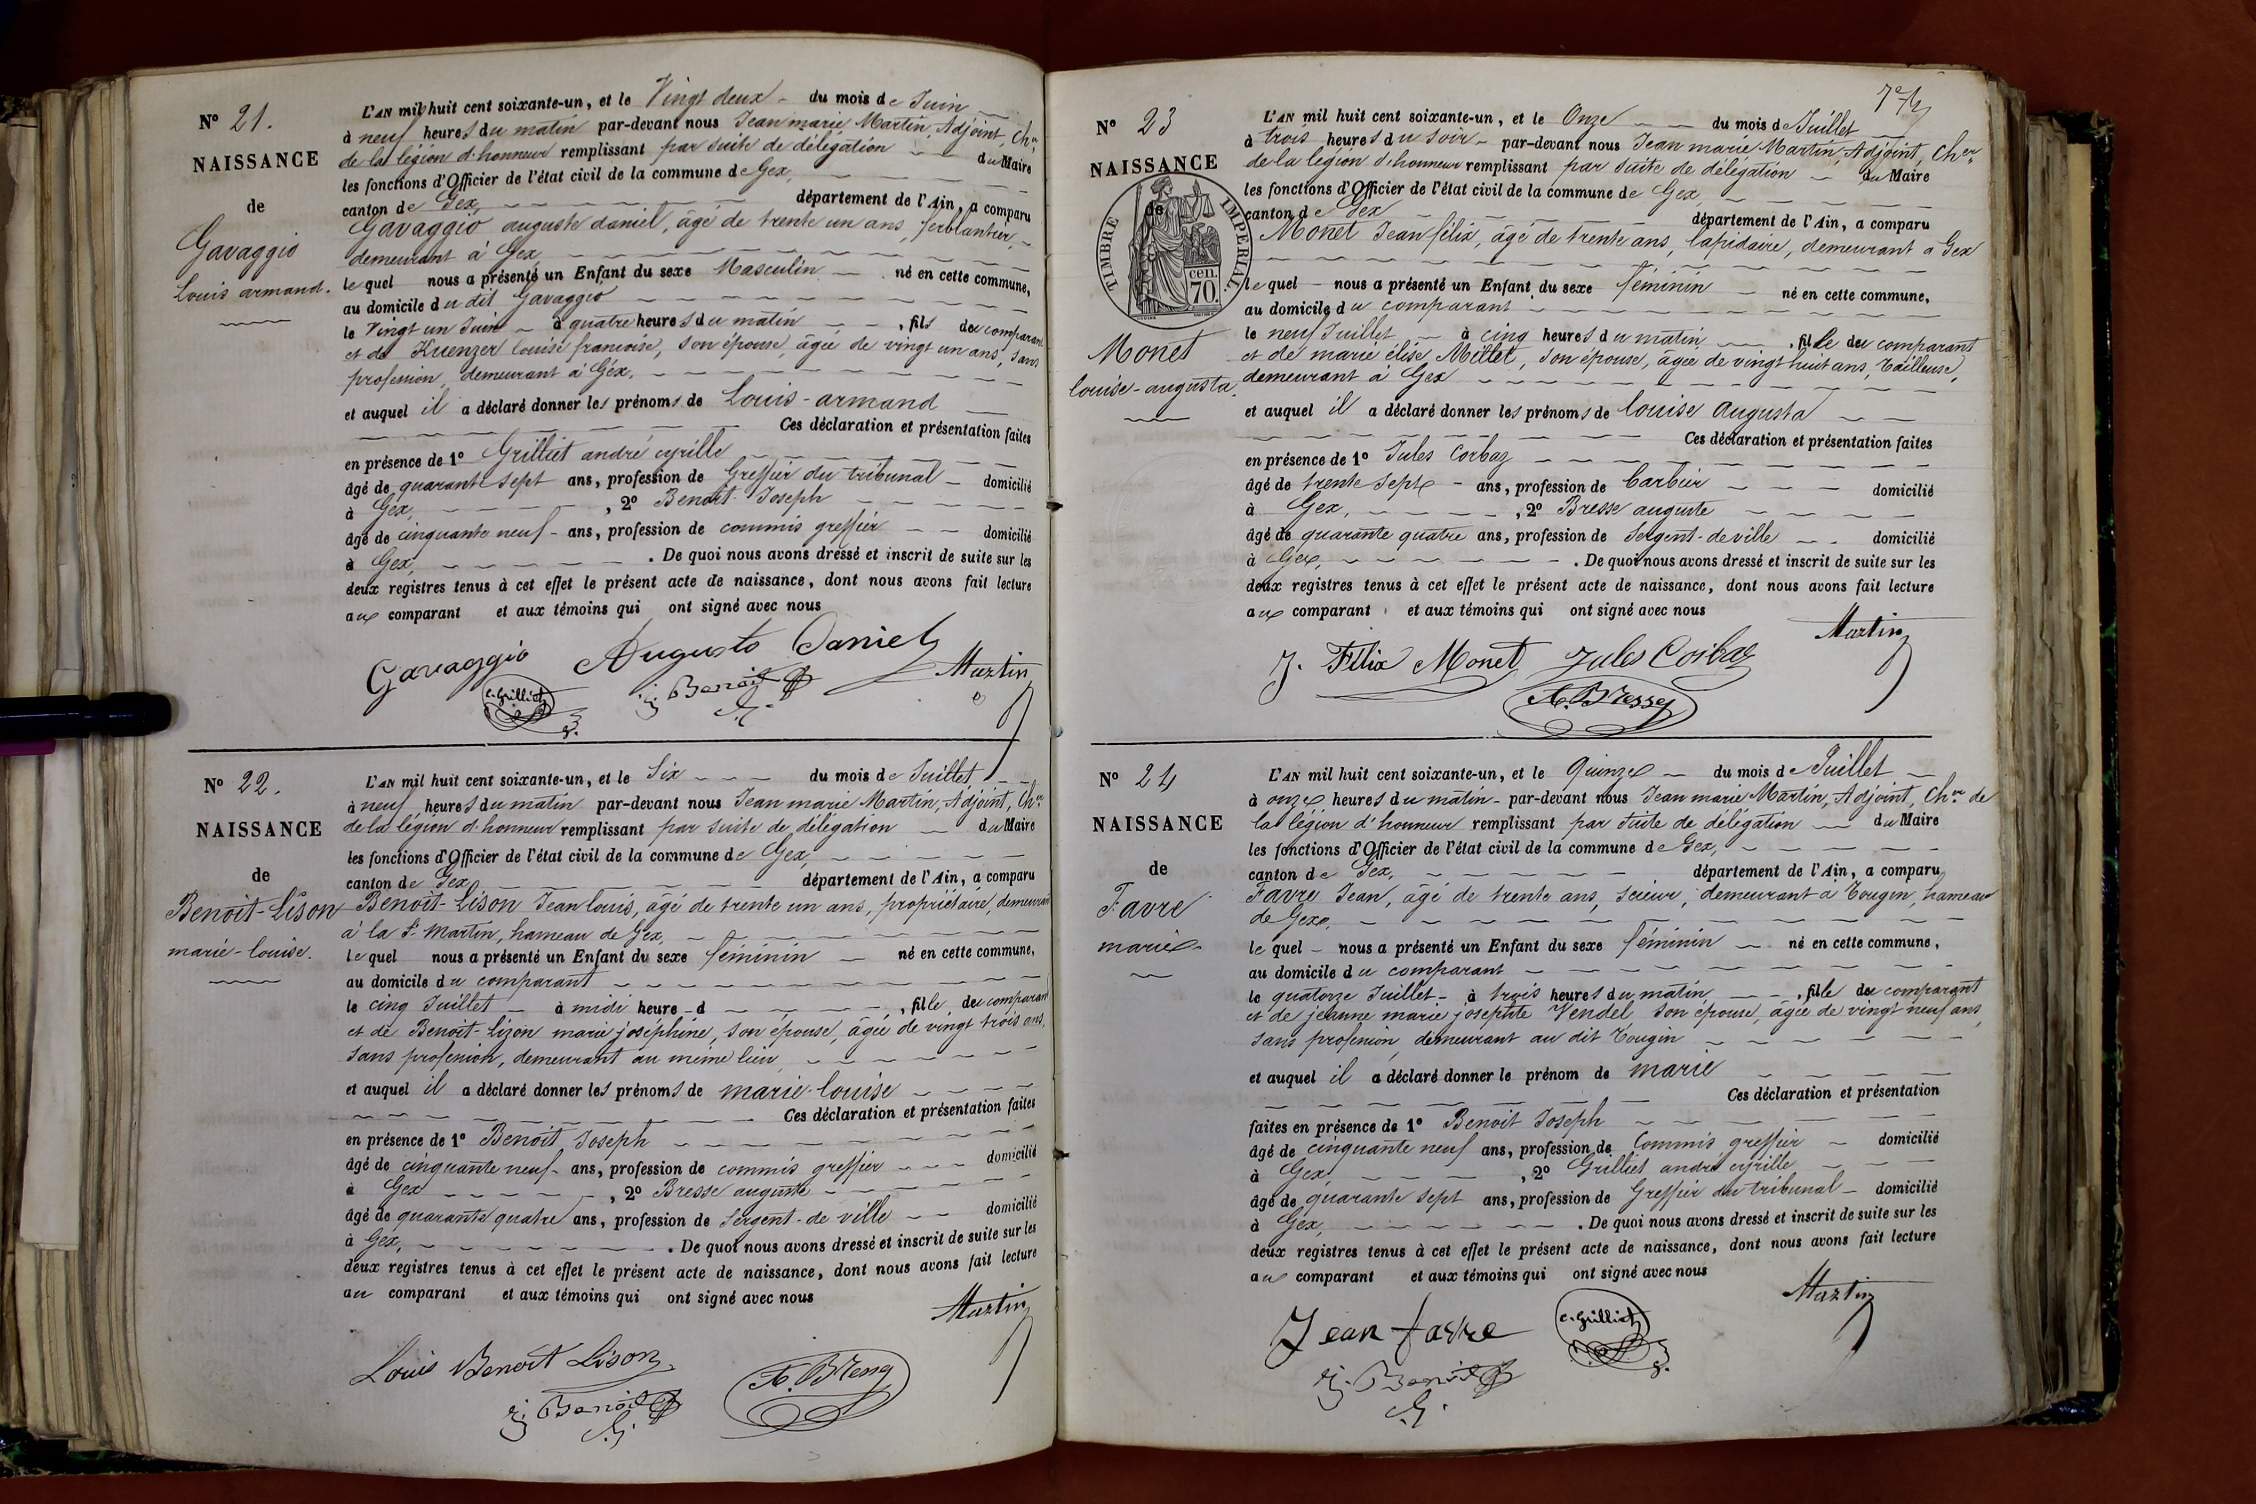 N° 21.
NAISSANCE
de
Gavaggio
Louis armand.
L'AN mil huit cent soixante-un, et le Vingt deux - du mois de Juin
à neuf heures du matin par-devant nous Jean marie Martin, Adjoint, Ch.er
de la légion d'honneur remplissant par suite de délégation du Maire
les fonctions d'Officier de l'état civil de la commune de Gex,
canton de Gex, département de l'Ain, a comparu
Gavaggio auguste daniel, âgé de trente un ans, ferblantier,
demeurant à Gex,
lequel nous a présenté un Enfant du sexe Masculin né en cette commune,
au domicile du dit Gavaggio
le Vingt un Juin à quatre heures du matin, fils du comparant
et de Kuenzer louise francoise, son épouse, âgée de vingt un ans, sans
profession, demeurant à Gex.
et auquel il a déclaré donner les prénoms de Louis-armand
Ces déclaration et présentation faites
en présence de 1° Grilliet andré cyrille
âgé de quarante sept ans, profession de Greffier du tribunal domicilié
à Gex, , 2° Benoit Joseph
âgé de cinquante neuf - ans, profession de commis greffier domicilié
à Gex, . De quoi nous avons dressé et inscrit de suite sur les
deux registres tenus à cet effet le présent acte de naissance, dont nous avons fait lecture
aux comparant et aux témoins qui ont signé avec nous
Gavaggio Auguste Daniel
Martin
c. Grilliet
j. Benoit
N° 22.
NAISSANCE
de
Benoit-Lison
marie-louise.
L'AN mil huit cent soixante-un, et le Six du mois de Juillet
à neuf heures du matin par-devant nous Jean marie Martin, Adjoint, Ch.er
de la légion d'honneur remplissant par suite de délégation du Maire
les fonctions d'Officier de l'état civil de la commune de Gex,
canton de Gex, département de l'Ain, a comparu
Benoit-Lison Jean louis, âgé de trente un ans, propriétaire, demeurant
à la St. Martin, hameau de Gex,
lequel nous a présenté un Enfant du sexe féminin né en cette commune,
au domicile du comparant
le cinq Juillet à midi heure d , fille du comparant
et de Benoit-Lizon marie joséphine, son épouse, âgée de vingt trois ans,
sans profession, demeurant au même lieu,
et auquel il a déclaré donner les prénoms de marie-louise
Ces déclaration et présentation faites
en présence de 1° Benoit Joseph
âgé de cinquante neuf - ans, profession de commis greffier domicilié
à Gex , 2° Bresse auguste
âgé de quarante quatre ans, profession de Sergent-de ville domicilié
à Gex, . De quoi nous avons dressé et inscrit de suite sur les
deux registres tenus à cet effet le présent acte de naissance, dont nous avons fait lecture
au comparant et aux témoins qui ont signé avec nous
Martin
Louis Benoit Lison
j. Benoit
N° 23
NAISSANCE
de
TIMBRE IMPERIAL
70. cen.
Monet
louise-augusta.
L'AN mil huit cent soixante-un, et le Onze du mois de Juillet
à trois heures du soir - par-devant nous Jean marie Martin, Adjoint, Ch.er
de la légion d'honneur remplissant par suite de délégation du Maire
les fonctions d'Officier de l'état civil de la commune de Gex,
canton de Gex département de l'Ain, a comparu
Monet Jean félix, âgé de trente ans, lapidaire, demeurant à Gex
lequel - nous a présenté un Enfant du sexe féminin né en cette commune,
au domicile du comparant
le neuf Juillet à cinq heures du matin , fille du comparant
et de marie élise Millet, son épouse, âgée de vingt huit ans, tailleuse,
demeurant à Gex
et auquel il a déclaré donner les prénoms de louise augusta
Ces déclaration et présentation faites
en présence de 1° Jules Corbaz
âgé de trente sept - ans, profession de barbier domicilié
à Gex, , 2° Bresse auguste
âgé de quarante quatre ans, profession de Sergent-de ville domicilié
à Gex, . De quoi nous avons dressé et inscrit de suite sur les
deux registres tenus à cet effet le présent acte de naissance, dont nous avons fait lecture
aux comparant et aux témoins qui ont signé avec nous
Martin
J. Félix Monet Jules Corbaz
A. Bresse
N° 24
NAISSANCE
de
Favre
marie
L'AN mil huit cent soixante-un, et le Quinze du mois de Juillet
à onze heures du matin - par-devant nous Jean marie Martin, Adjoint, Ch.er de
la légion d'honneur remplissant par suite de délégation du Maire
les fonctions d'Officier de l'état civil de la commune de Gex,
canton de Gex, département de l'Ain, a comparu
Favre Jean, âgé de trente ans, scieur, demeurant à Tougin, hameau
de Gex,
lequel - nous a présenté un Enfant du sexe féminin né en cette commune,
au domicile du comparant
le quatorze Juillet - à trois heures du matin , fille du comparant
et de jeanne marie josephte Vendel son épouse, âgée de vingt neuf ans,
sans profession, demeurant au dit Tougin
et auquel il a déclaré donner le prénom de marie
Ces déclaration et présentation
faites en présence de 1° Benoit Joseph
âgé de cinquante neuf ans, profession de Commis greffier domicilié
à Gex, , 2° Grilliet andré cyrille
âgé de quarante sept ans, profession de Greffier du tribunal domicilié
à Gex, . De quoi nous avons dressé et inscrit de suite sur les
deux registres tenus à cet effet le présent acte de naissance, dont nous avons fait lecture
au comparant et aux témoins qui ont signé avec nous
Martin
Jean favre
c. Grilliet
j. Benoit